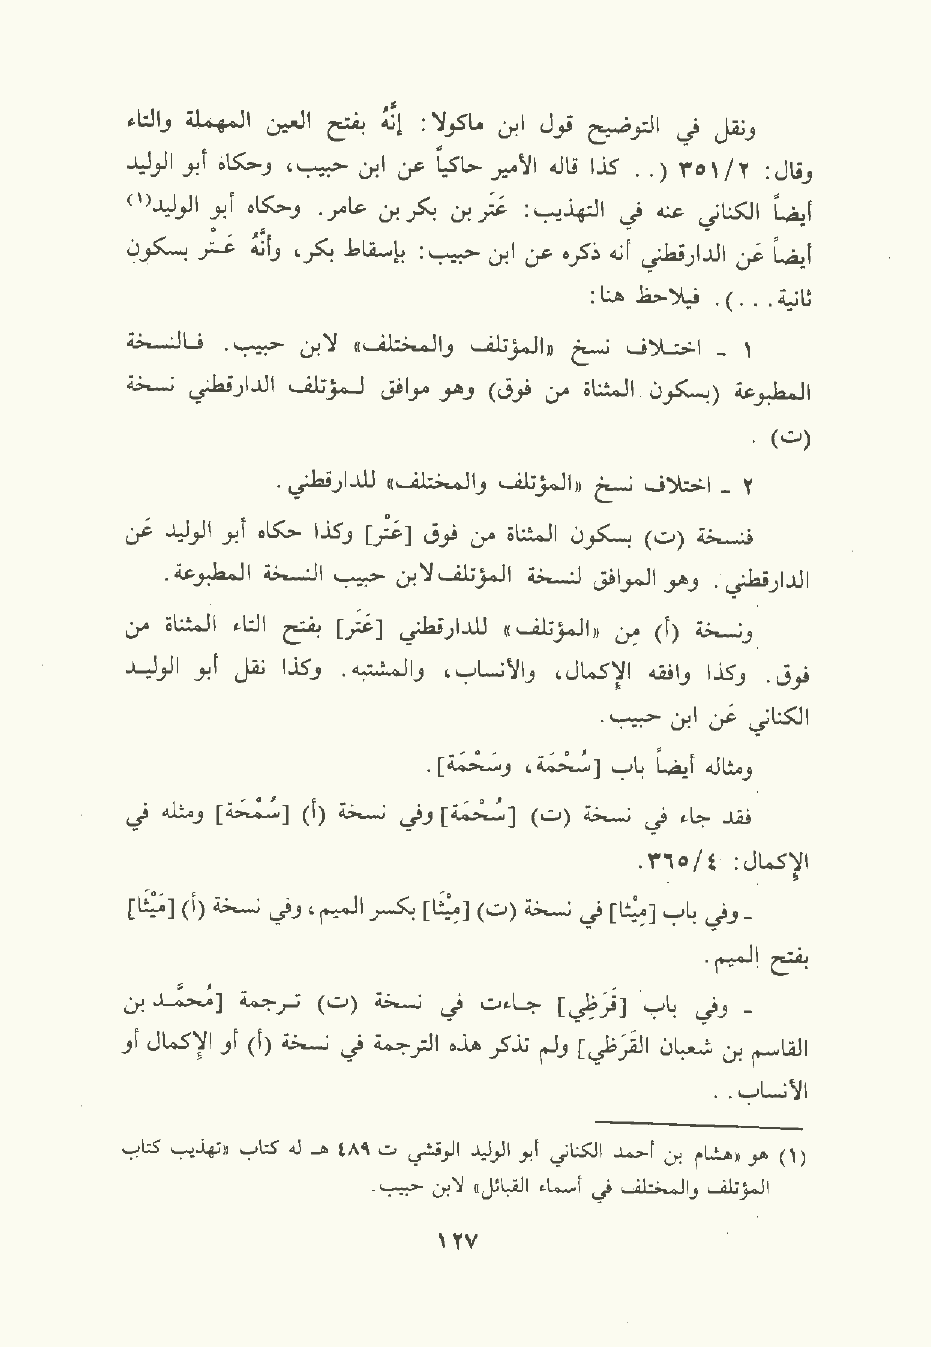 ونقل في التوضيح قول ابن ماكولا: إنَّهُ بفتح العين المهملة والتاء
وقال: ٣٥١/٢ (. . كذا قاله الأمير حاكياً عن ابن حبيب، وحكاه أبو الوليد
أيضاً الكناني عنه في التهذيب: عَتَر بن بكر بن عامر. وحكاه أبو الوليد(١)
أيضاً عَن الدارقطني أنه ذكره عن ابن حبيب: بإسقاط بكر، وأنَّهُ عَـتْر بسكون
ثانية. . . .). فيلاحظ هنا:
١ - اختـلاف نسخ «المؤتلف والمختلف» لابن حبيب. فـالنسخة
المطبوعة (بسكون المثناة من فوق) وهو موافق لـمؤتلف الدارقطني نسخة
(ت) .
٢ - اختلاف نسخ «المؤتلف والمختلف» للدارقطني.
فنسخة (ت) بسكون المثناة من فوق [عَتْر] وكذا حكاه أبو الوليد عَن
الدارقطني. وهو الموافق لنسخة المؤتلف لابن حبيب النسخة المطبوعة.
ونسخة (أ) مِن «المؤتلف» للدارقطني [عَتَر] بفتح التاء المثناة من
فوق. وكذا وافقه الإكمال، والأنساب، والمشتبه. وكذا نقل أبو الوليـد
الكناني عَن ابن حبيب.
ومثاله أيضاً باب [سُحْمَة، وسَحْمَة].
فقد جاء في نسخة (ت) [سُحْمَة] وفي نسخة (أ) [سُمْحَة] ومثله في
الإكمال: ٣٦٥/٤.
- وفي باب [مِيْثا] في نسخة (ت) [مِيْثَا] بكسر الميم، وفي نسخة (أ) [مَيْثَا]
بفتح الميم.
- وفي باب [قَرَظِي] جـاءت في نسخة (ت) تـرجمة [مُحمَّـد بن
القاسم بن شعبان القَرَظِي] ولم تذكر هذه الترجمة في نسخة (أ) أو الإكمال أو
الأنساب. .
(١) هو «هشام بن أحمد الكناني أبو الوليد الوقشي ت ٤٨٩ هـ له كتاب «تهذيب كتاب
المؤتلف والمختلف في أسماء القبائل» لابن حبيب.
١٢٧